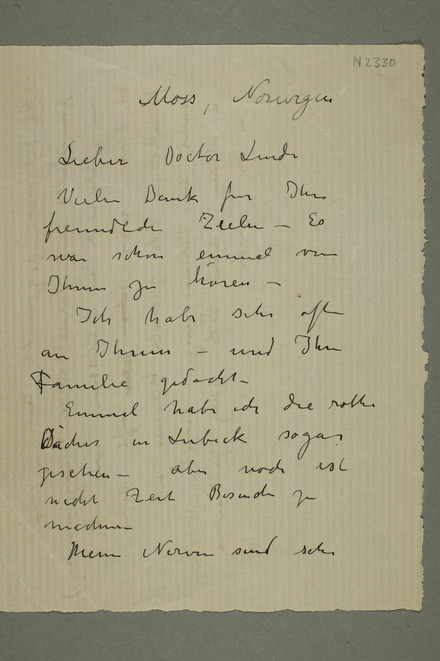 N 2330
Moss, Norwegen
Lieber Doctor Linde
Vielen Dank fur Ihre
freundlede Zeilen – Es
war schon einmal von
Ihnen zu hören –
Ich habe sehr oft
an Ihnen – und Ihre
Familie gedacht –
Einmal habe ich die rothe
Dächer in Lubeck sogar
gesehen – aber noch ist
nicht Zeit Besuche zu
machen –
Meine Nerven sind sehr